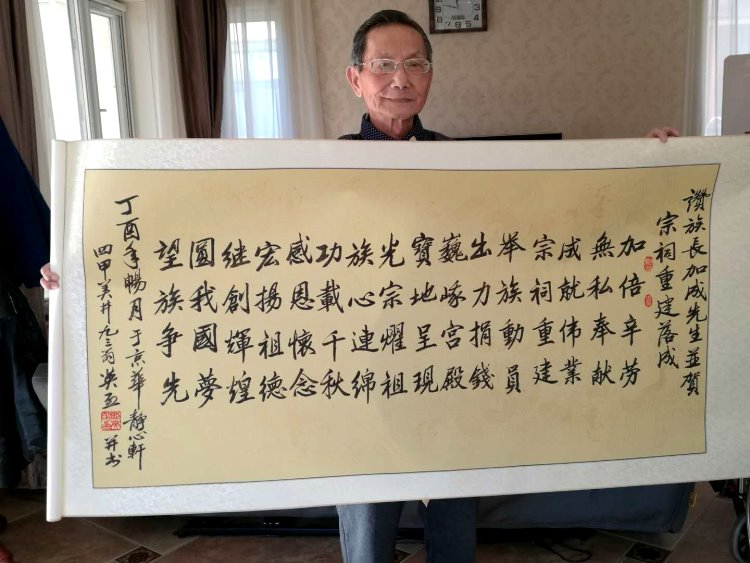 讚族長加成先生並賀
宗祠重建落成
加倍辛劳
無私奉献
成就伟業
宗祠重建
举族動員
出力捐錢
巍峨宫殿
寶地呈現
光宗耀祖
族心連綿
功載千秋
感恩懷念
宏揚祖德
继創輝煌
圓我國夢
望族争先
丁酉年暢月于京華靜心軒
四甲美井九三翁吴并书